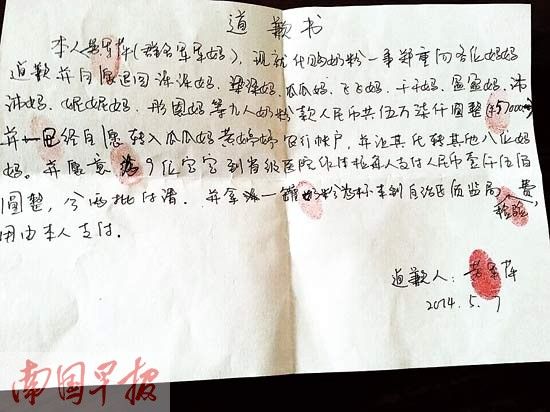 道歉书
本人(群名军军妈),现就代购奶粉一事郑重向各位妈妈
道歉并自愿退回泽泽妈、梁梁妈、瓜瓜妈、飞飞妈、千千妈、盈盈妈、沐
沐妈、妮妮妈、彤图妈等九人奶粉款人民币共伍万柒仟圆整(¥57000
并已经自愿转入瓜瓜妈黄婷婷银行帐户,并让其代转其他八位妈
妈。并愿意为9位宝宝到省级医院做体检每人支付人民币壹仟伍佰
圆整,分两批付清.并拿一罐奶粉样本到自治区质监局检验,费
用由本人支付.
道歉人:
2014.5.7
南国早报